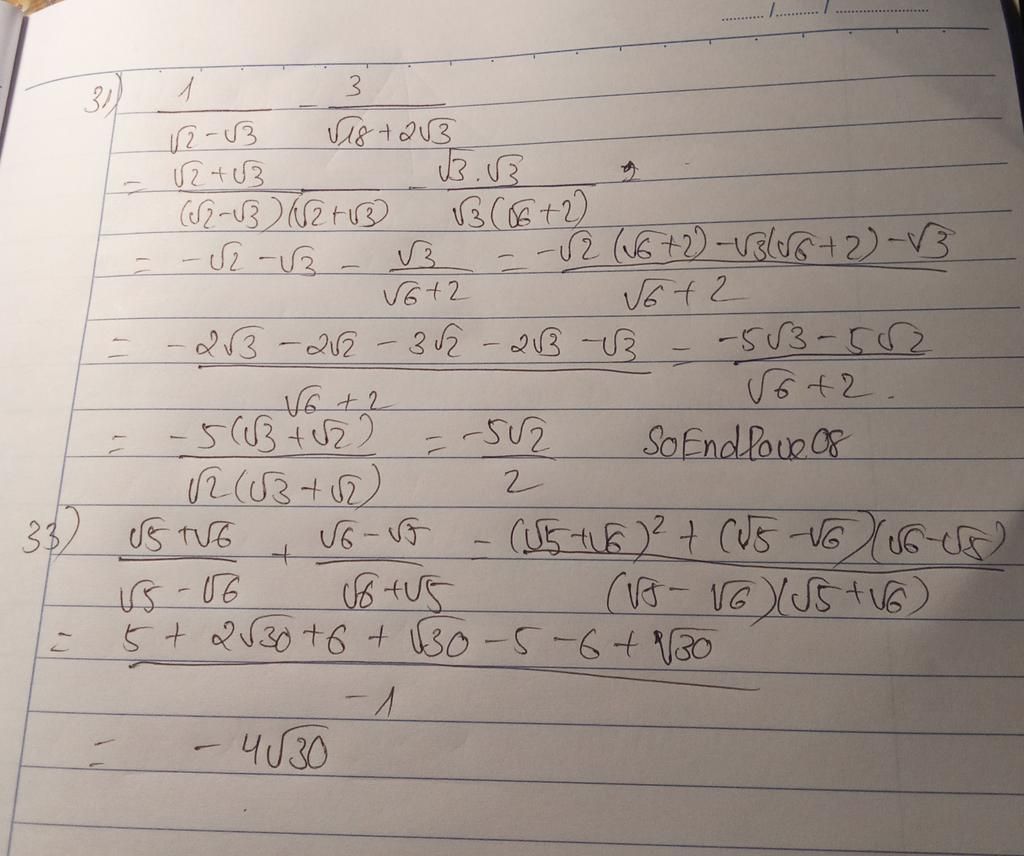 31) 1/(√2-√3) - 3/(√18+2√3)
= (√2+√3)/((√2-√3)(√2+√3)) - (√3.√3)/(√3(√6+2))
= -√2-√3 - √3/(√6+2) = (-√2(√6+2)-√3(√6+2)-√3)/(√6+2)
= (-2√3-2√2-3√2-2√3-√3)/(√6+2) = (-5√3-5√2)/(√6+2).
= (-5(√3+√2))/(√2(√3+√2)) = (-5√2)/2
33) (√5+√6)/(√5-√6) + (√6-√5)/(√6+√5) = ((√5+√6)²+(√5-√6)(√6-√5))/((√5-√6)(√5+√6))
= (5+2√30+6+√30-5-6+√30)/(-1)
= -4√30